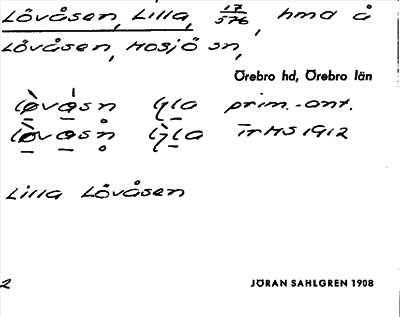 Lövåsen, Lilla, 17/576, hmd å
Lövåsen, Mosjö sn,
Örebro hd, Örebro län
prim.-ant.
TrHS 1912
Lilla Lövåsen
2
JÖRAN SAHLGREN 1908